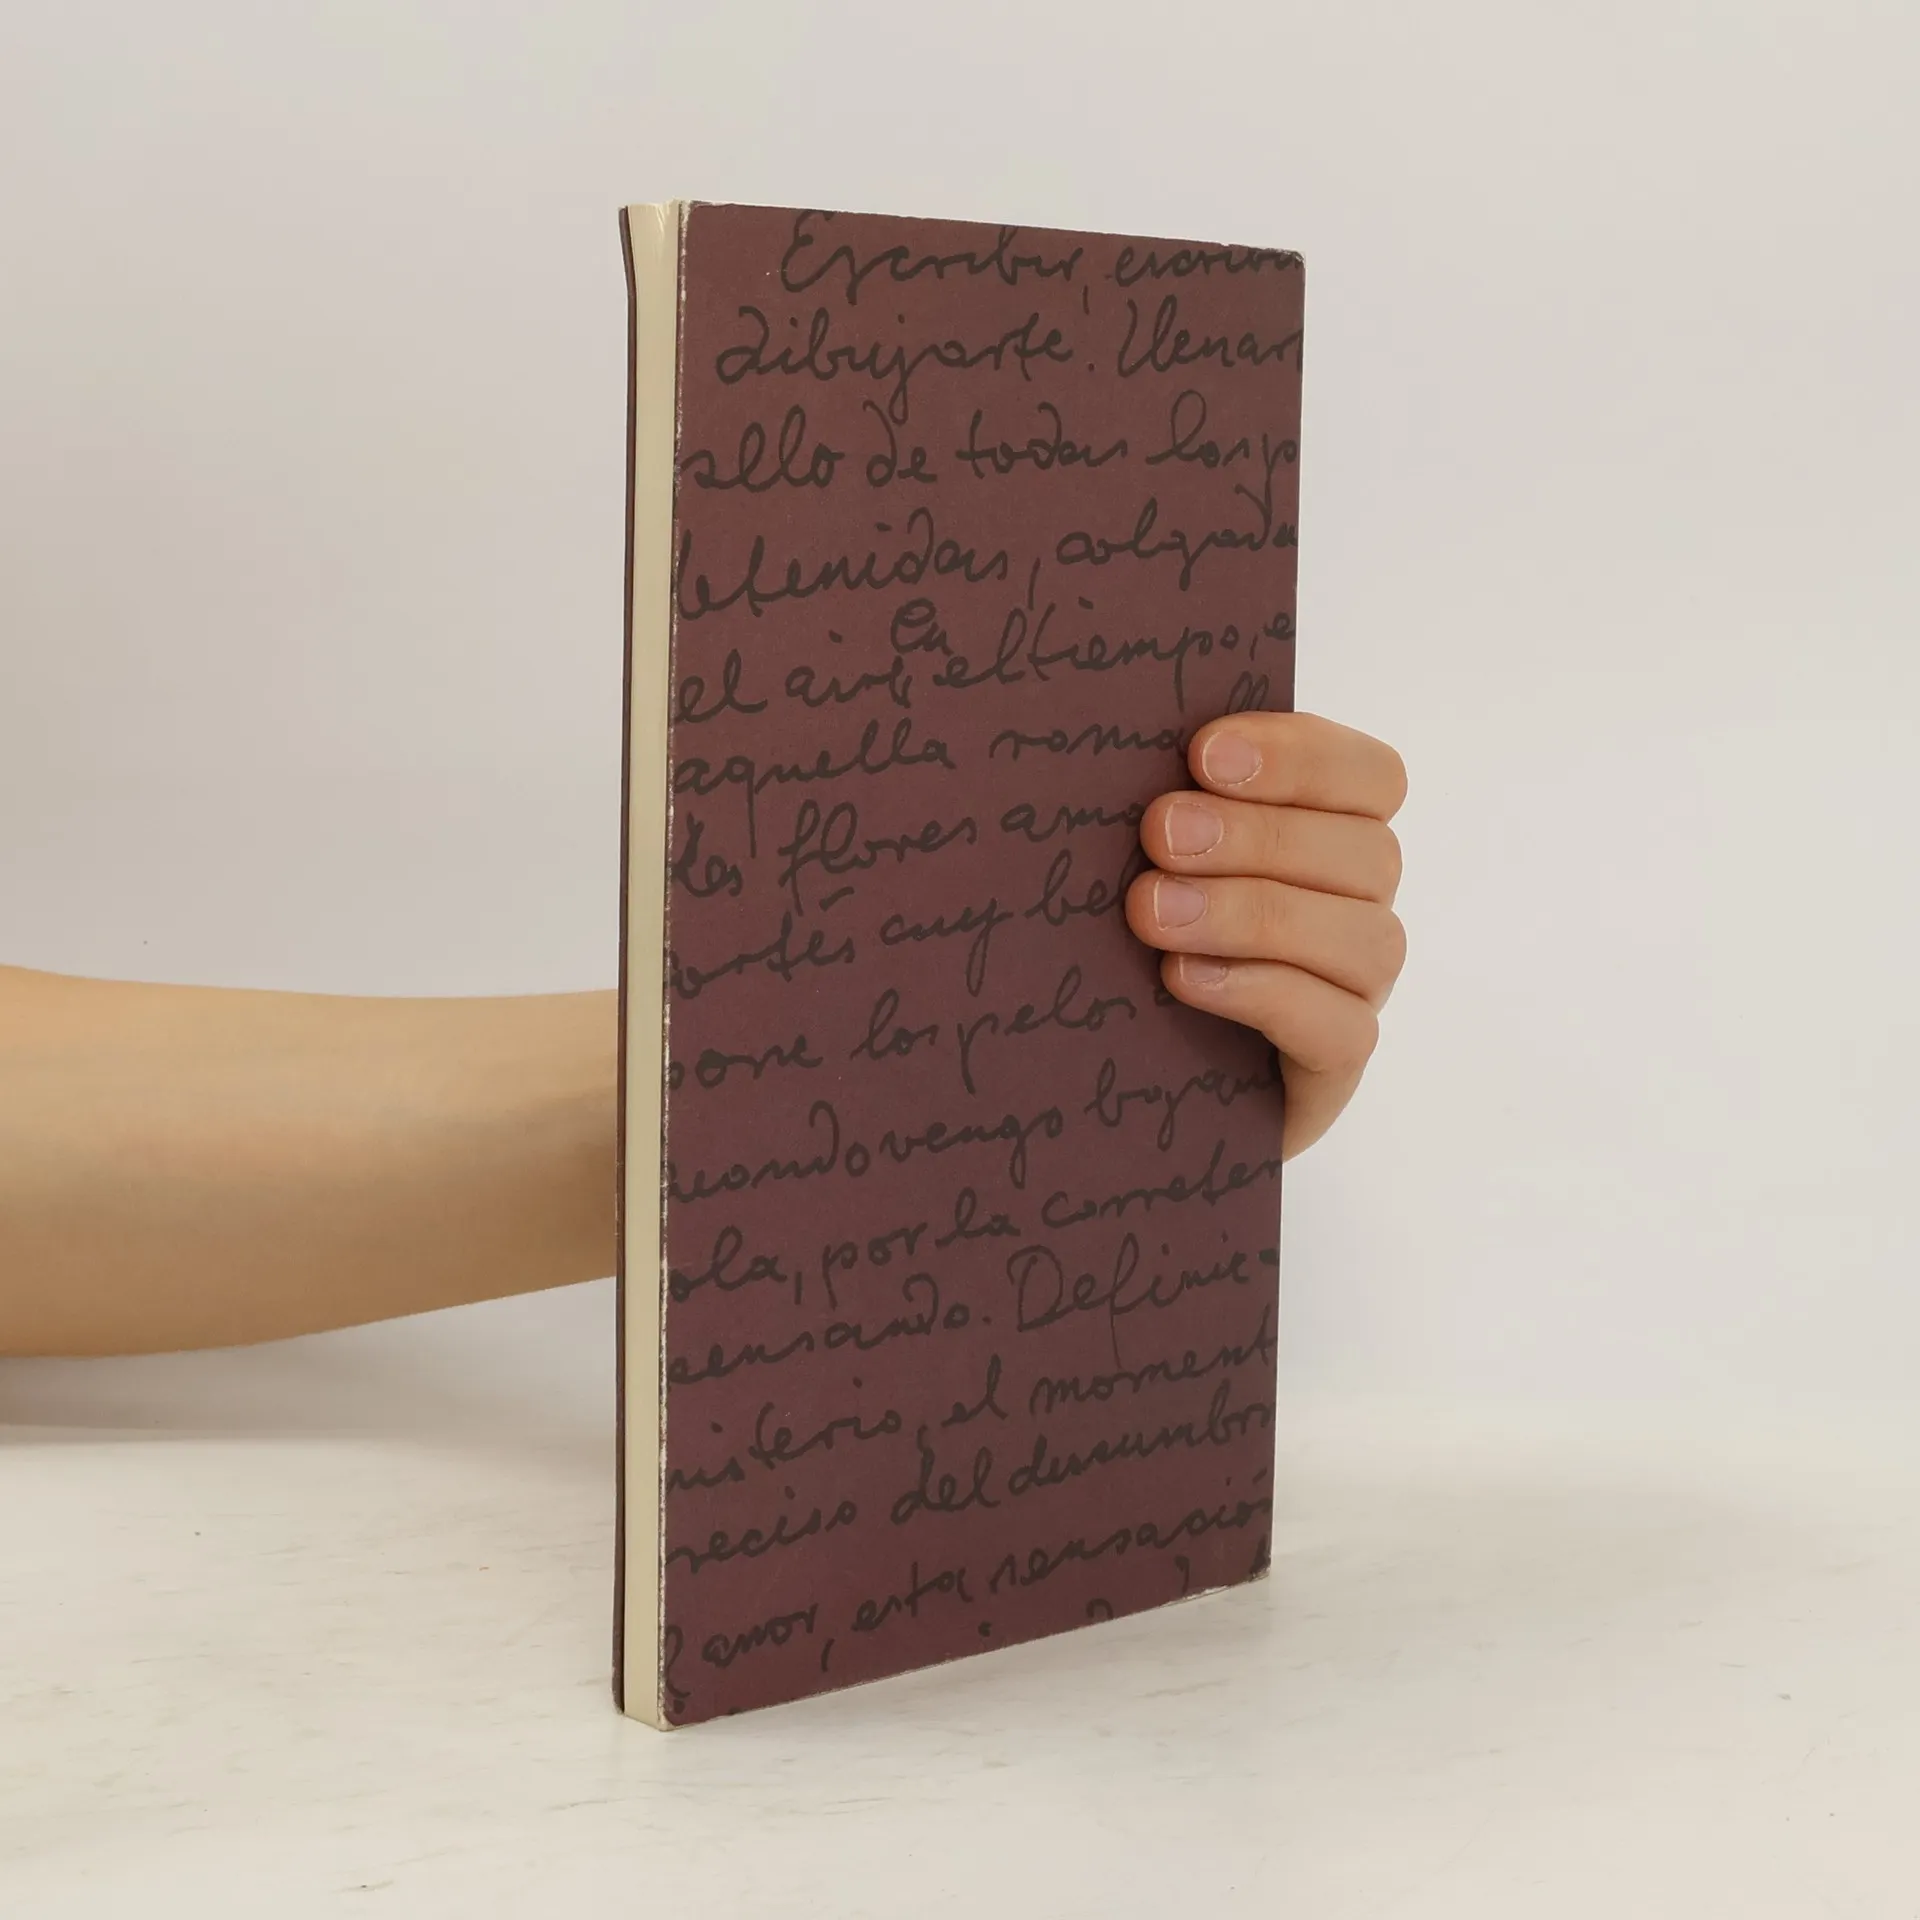 Escribir, escriba
dibujarte. Llenar
sello de todas los p
detenidas, colgada
En
el aire, el tiempo, e
aquella roma
tes flores amo
cortés cuy bel
pone los pelos
cuando vengo bajan
ola, por la carreter
pensando. Definir a
misterio, el moment
preciso del desumbra
el amor, esta sensación